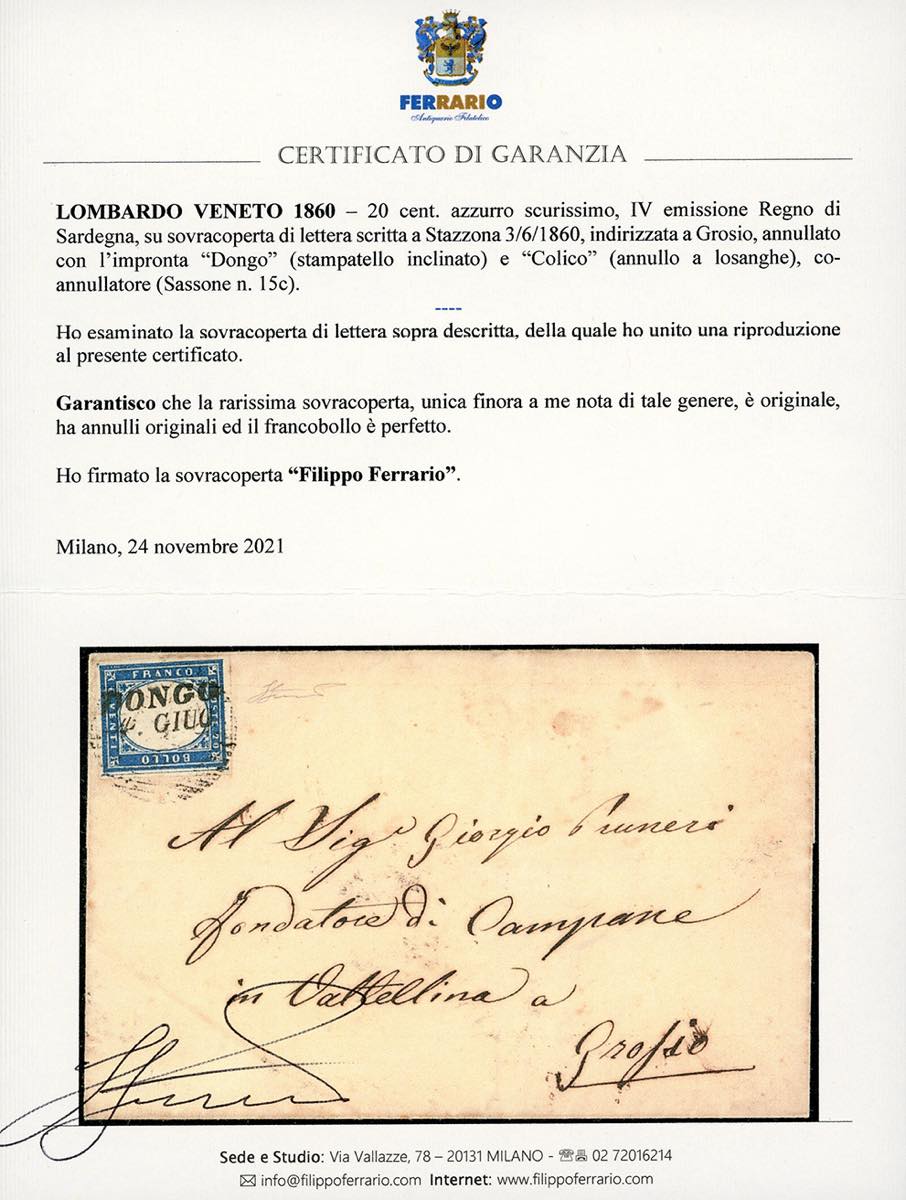 FERRARIO
Antiquario Filatelico
CERTIFICATO DI GARANZIA
LOMBARDO VENETO 1860 – 20 cent. azzurro scurissimo, IV emissione Regno di
Sardegna, su sovracoperta di lettera scritta a Stazzona 3/6/1860, indirizzata a Grosio, annullato
con l’impronta “Dongo” (stampatello inclinato) e “Colico” (annullo a losanghe), co-
annullatore (Sassone n. 15c).
----
Ho esaminato la sovracoperta di lettera sopra descritta, della quale ho unito una riproduzione
al presente certificato.
Garantisco che la rarissima sovracoperta, unica finora a me nota di tale genere, è originale,
ha annulli originali ed il francobollo è perfetto.
Ho firmato la sovracoperta “Filippo Ferrario”.
Milano, 24 novembre 2021
FRANCO
DONGO
GIUG
BOLLO
Al Sigr Giorgio Pruneri
fondatore di Campane
in Valtellina a
Grosio
Sede e Studio: Via Vallazze, 78 – 20131 MILANO - 02 72016214
info@filippoferrario.com Internet: www.filippoferrario.com